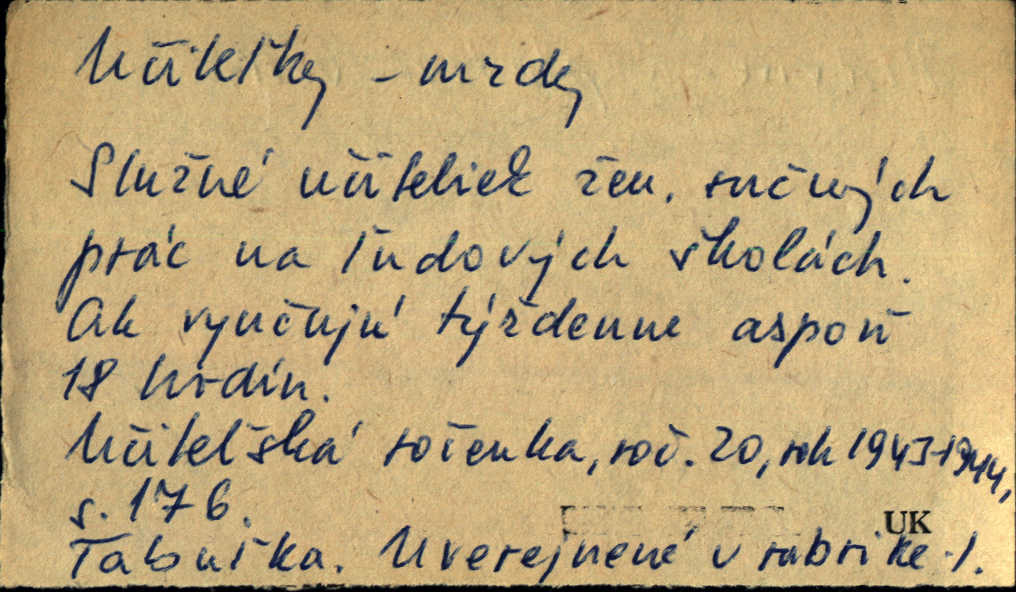 Učiteľky - mzdy
Služné učiteliek žen. ručných
prác na ľudových školách.
Ak vyučujú týždenne aspoň
18 hodín.
Učiteľská ročenka, roč. 20, rok 1943-1944,
s. 176.
UK
Tabuľka. Uverejnené v rubrike 1.